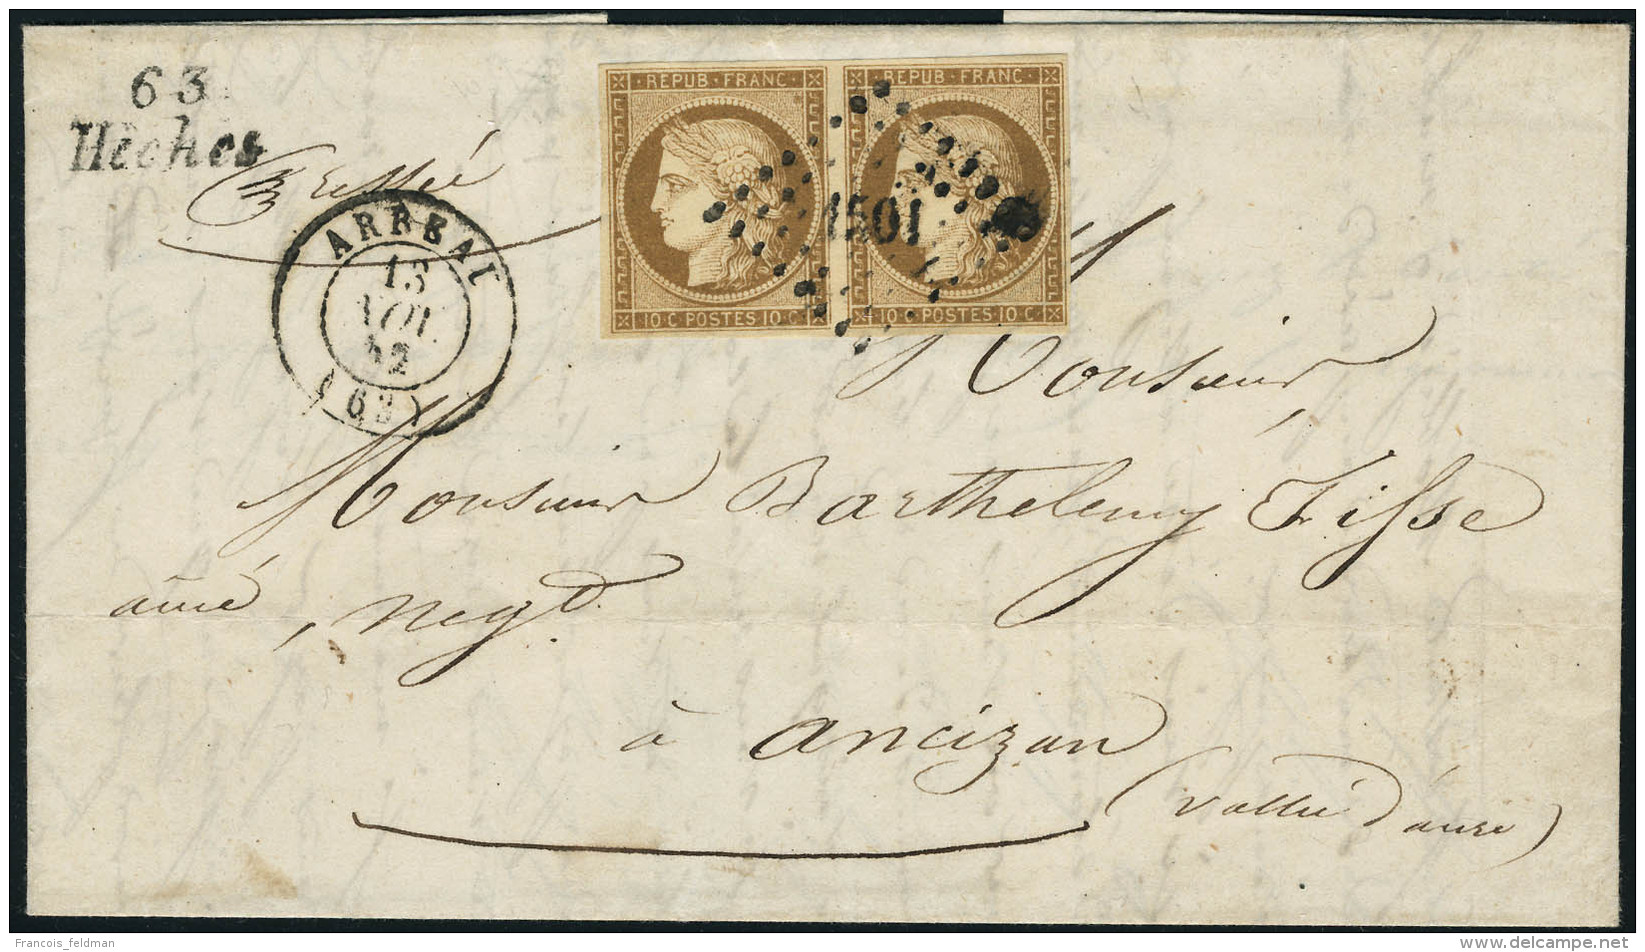 63
Hèches
Pressée
ARREAU
13
NOV.
52
(63)
REPUB · FRANC ·
10 · C · POSTES 10 · C ·
REPUB · FRANC ·
10 · C · POSTES 10 · C ·
1501
Monsieur,
Monsieur Barthelemy Fisse
ainé, negt.
à ancizan
(vallée d'aure)
Francois_feldman
www.delcampe.net